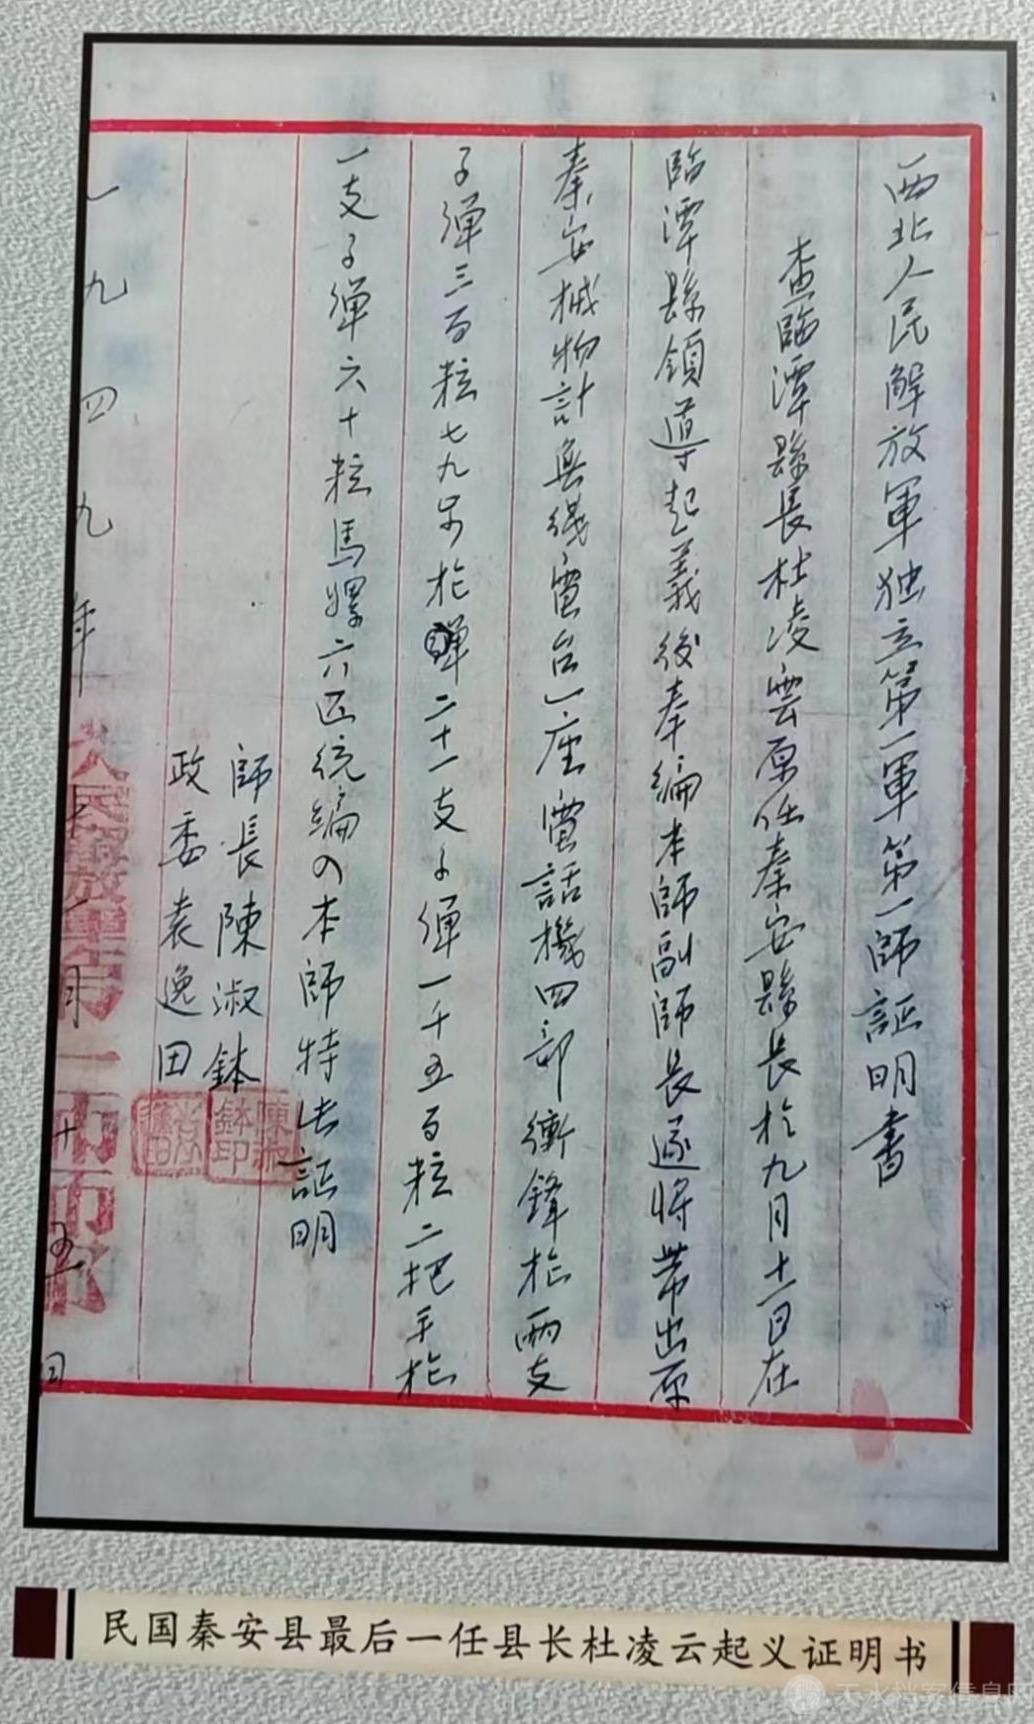 西北人民解放軍独立第一軍第一師証明書
查臨潭縣長杜凌雲原任秦安縣長於九月十一日在
臨潭縣領導起義後奉編本師副師長遂將帶出原
秦安械物計無綫電台一座電話機四部衝鋒枪兩支
子弹三百粒七九步枪弹二十一支子弹一千五百粒二把手枪
一支子弹六十粒馬騾六匹統編入本師特此証明
師長陳淑鉢
政委袁逸田
陳淑鉢印
一九四九年十一月十五日
民国秦安县最后一任县长杜凌云起义证明书
天水档案信息网